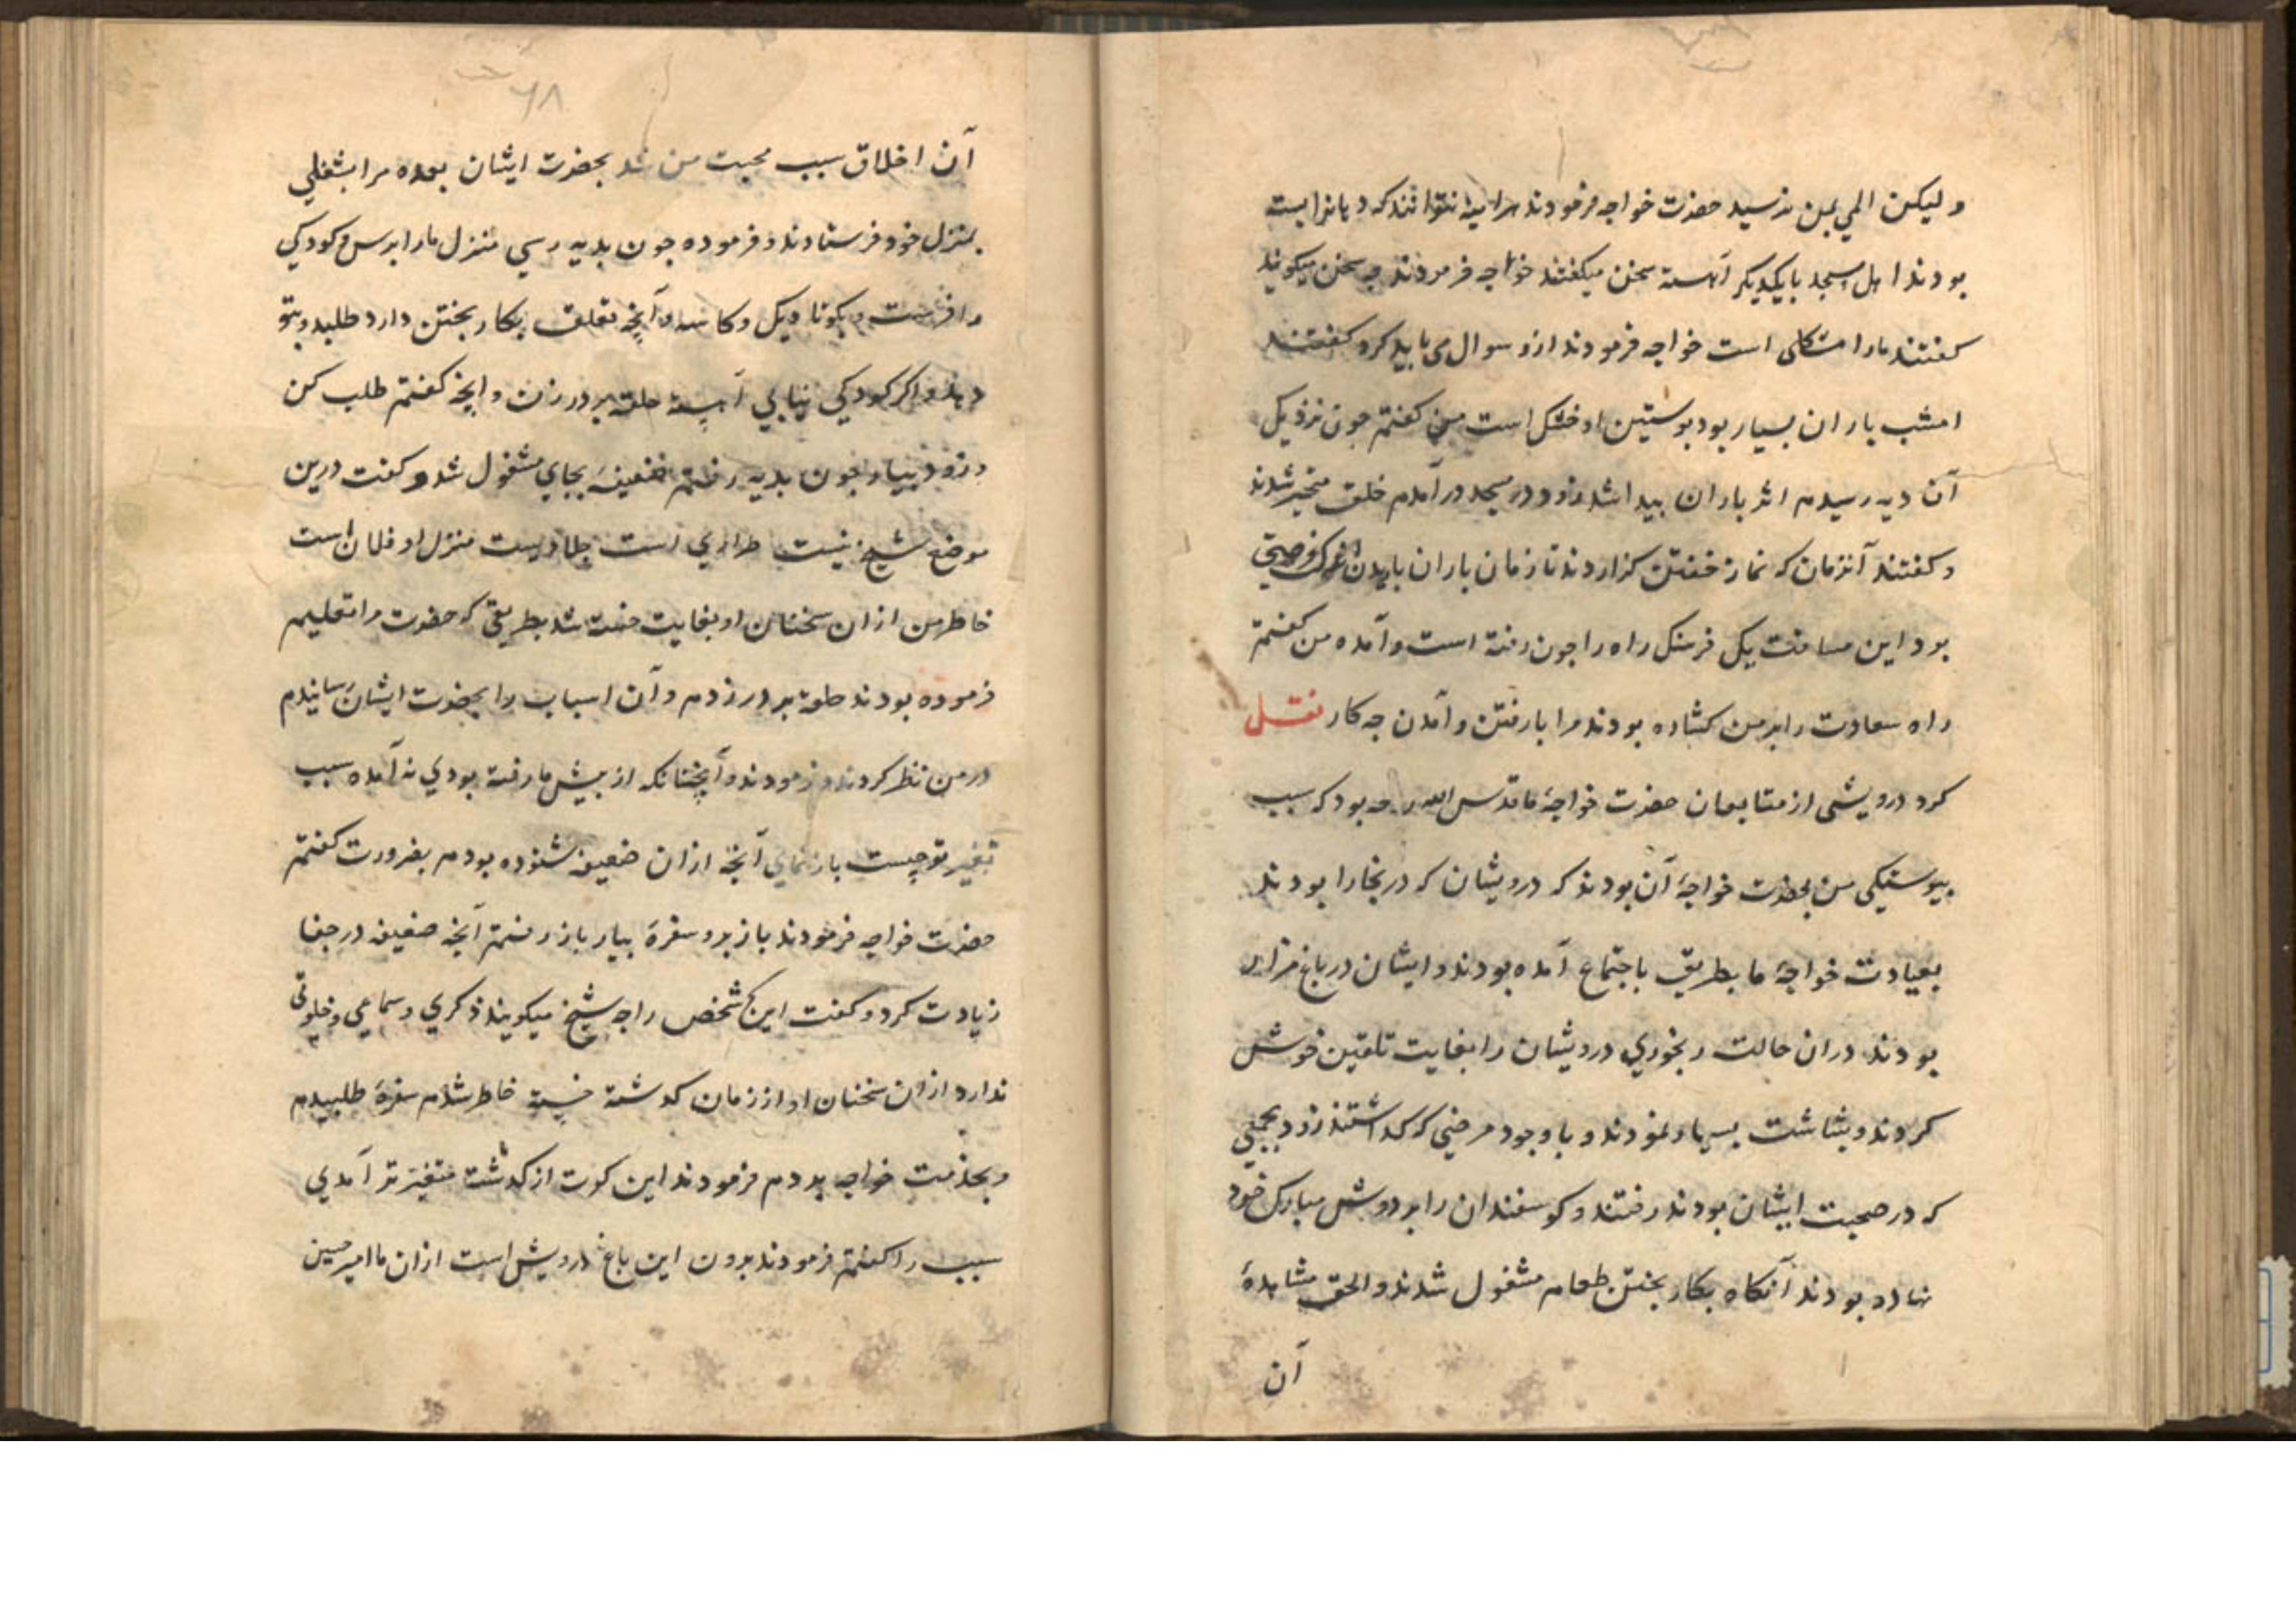 ولیکن المی بمن نرسید حضرت خواجه فرمودند هر آینه نتوانند که دیانرا بسته
بودند اهل مسجد با یکدیکر آهسته سخن میکفتند خواجه فرمودند چه سخن میکویند
کفتند مارا مشکلی است خواجه فرمودند ازو سوال می باید کرد کفتند
امشب باران بسیار بود بوستین او خشک است من کفتم جون نزدیک
آن دیه رسیدم اثر باران بیدا شد زود در مسجد در آمدم خلق متحیر شدند
و کفتند آنزمان که نماز خفتن کزاردند تا زمان باران باریدن اندک فرصتی
بود این مسافت یک فرسنک راه را جون رفته است و آمده من کفتم
راه سعادت را بر من کشاده بودند مرا با رفتن و آمدن جه کار نقل
کرد درویشی از متابعان حضرت خواجهٔ ما قدس الله روحه بود که سبب
بیوستیکی من بحضرت خواجهٔ آن بود که درویشان که در بخارا بودند
بعیادت خواجهٔ ما بطریق باجتماع آمده بودند و ایشان در باغ مزار
بودند دران حالت رنجوری درویشان را بغایت تلقین خوش
کردند و بشاشت بسیار نمودند و با وجود مرضی که کداشتند زود بجمعی
که در صحبت ایشان بودند رفتند و کوسفندان را بر دوش مبارک خود
نهاده بودند آنکاه بکار بختن طعام مشغول شدند والحق مشاهدهٔ
آن
۶۸
آن اخلاق سبب محبت من شد بحضرت ایشان بعده مرا بشغلی
بمنزل خود فرستادند و فرموده جون بدیه رسی منزل ما را ببرس و کودکی
را فرست و بکو تا دیک و کاسه و آنچه تعلق بکار بختن دارد طلبد و بتو
دهد و اکر کودکی نیابی آهسته حلقه بر در زن و آنچه کفتم طلب کن
و زود بیار جون بدیه رفتم ضعیفهٔ بجای مشغول شد و کفت درین
موضع شیخ نیست طراری است جلادیست منزل او فلان است
خاطر من ازان سخنان او بغایت خسته شد بطریقی که حضرت مرا تعلیم
فرموده بودند حلقه بر در زدم و آن اسباب را بحضرت ایشان رسانیدم
در من نظر کردند و فرمودند و آنچنانکه از بیش ما رفته بودی نه آمده سبب
تغیر تو چیست باز نمای آنچه ازان ضعیفه شنوده بودم بضرورت کفتم
حضرت خواجه فرمودند باز برو سفرهٔ بیار باز رفتم آنچه ضعیفه در جفا
زیادت کرد و کفت این شخص را جه شیخ میکویند ذکری و سماعی و خلوتی
ندارد ازان سخنان او از زمان کدشته خسته خاطر شدم سفرهٔ طلبیدم
و بخدمت خواجه بردم فرمودند این کرت از کدشته متغیرتر آمدی
سبب را کفتم فرمودند برون این باغ درویش است ازان ما امیر حسین